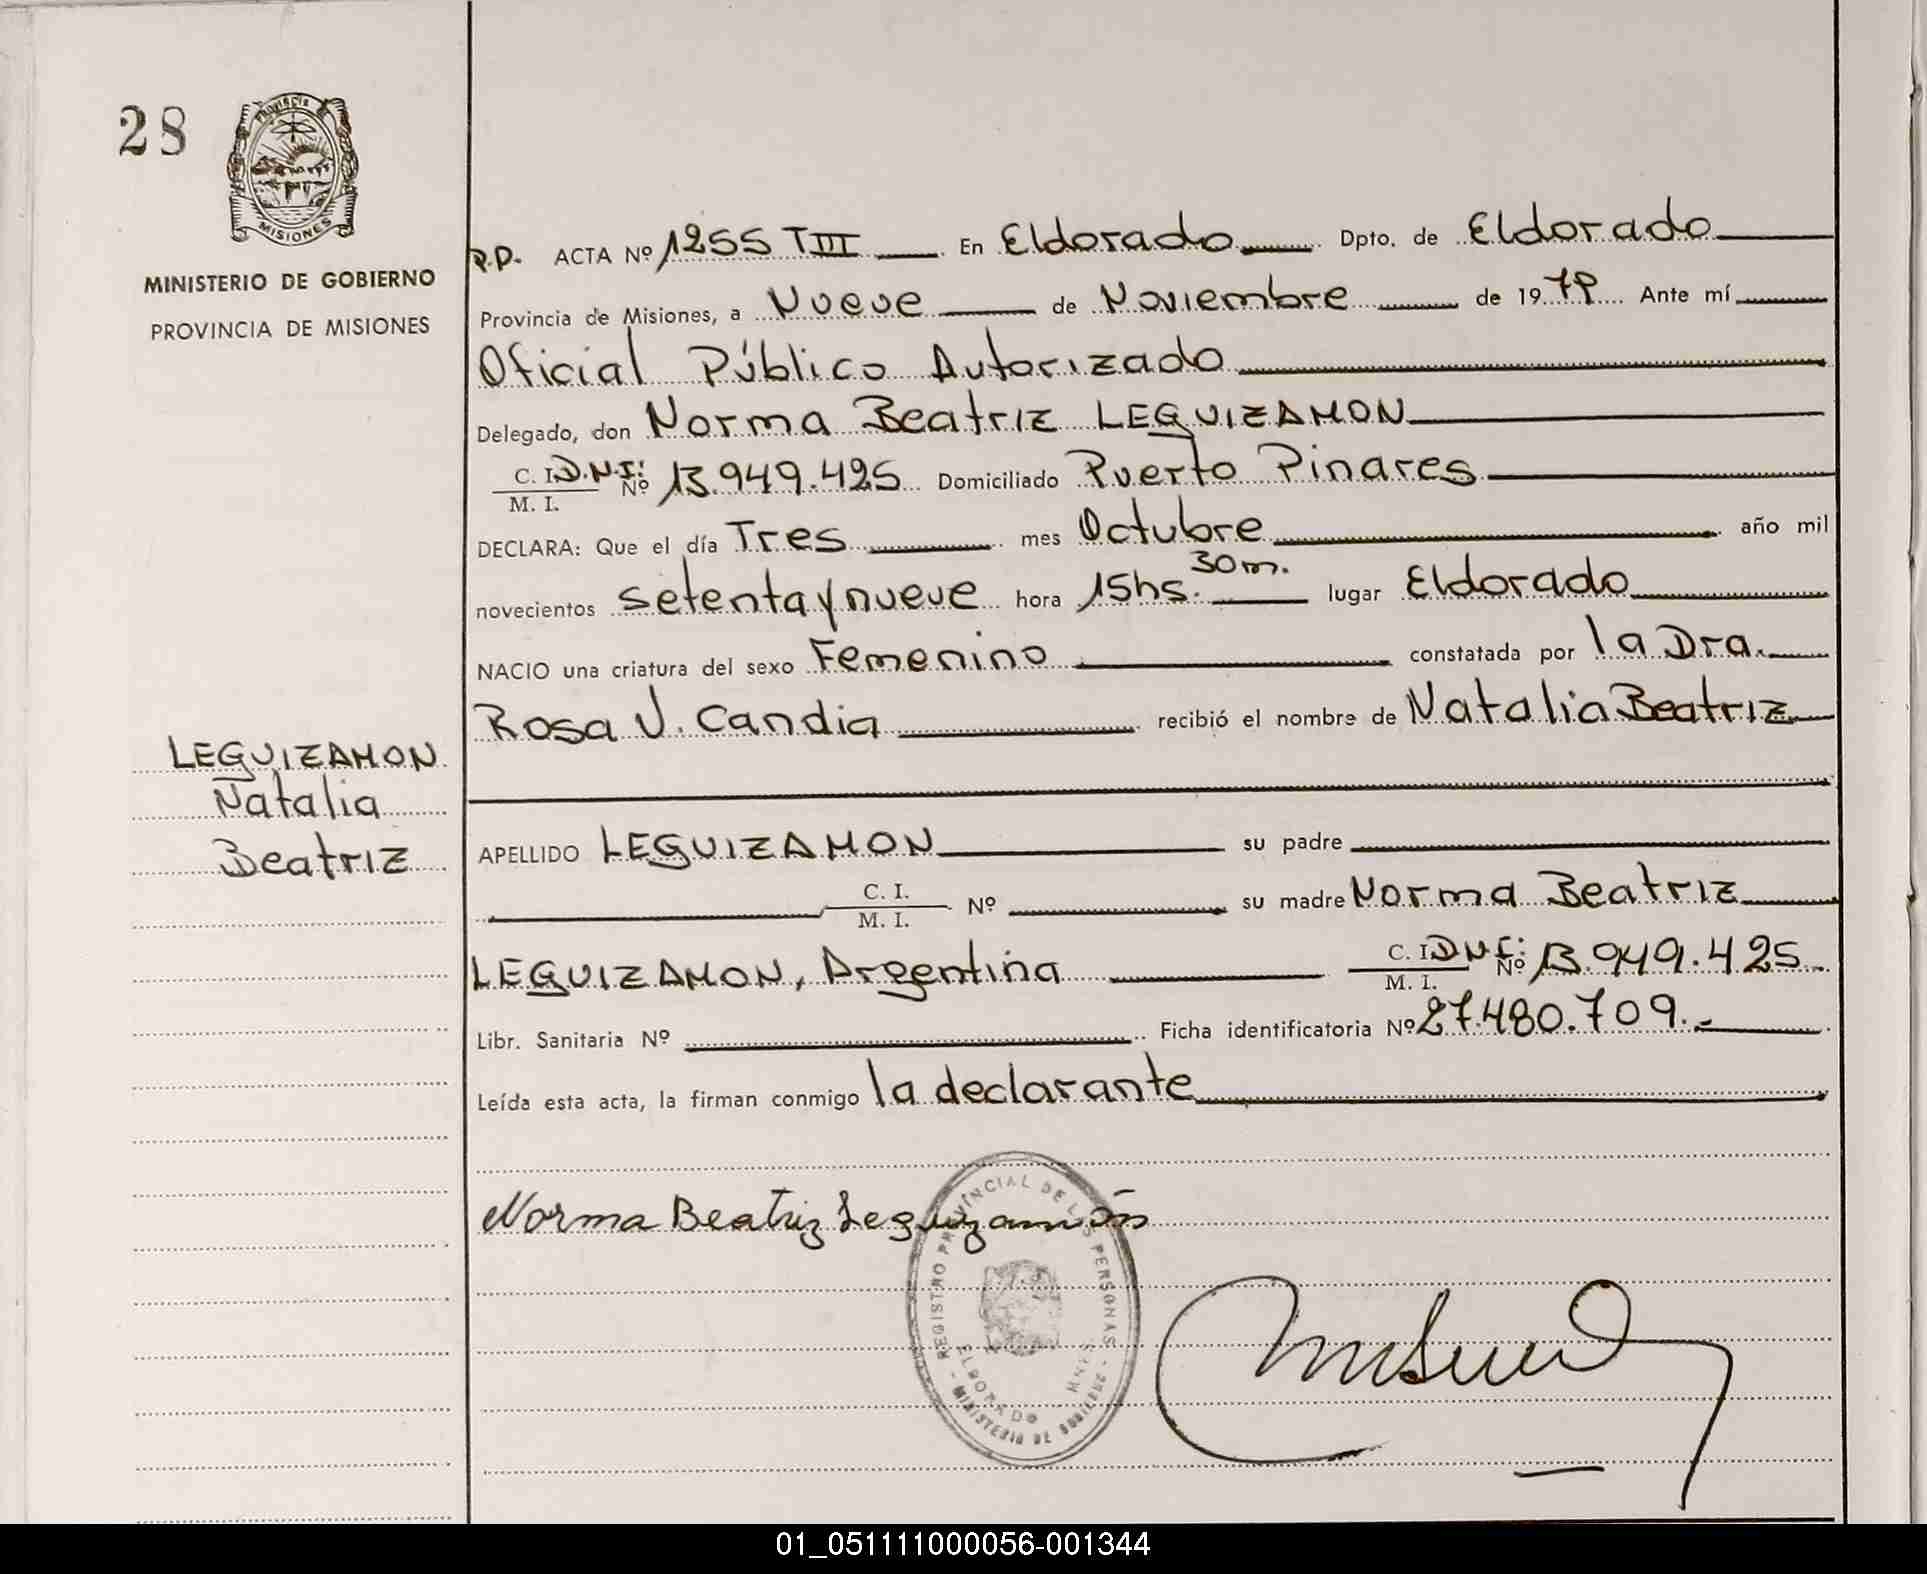 28
Provincia
MISIONES
MINISTERIO DE GOBIERNO
PROVINCIA DE MISIONES
R.P. ACTA Nº 1255 T III En Eldorado Dpto. de Eldorado
Provincia de Misiones, a Nueve de Noviembre de 1979 Ante mí
Oficial Público Autorizado
Delegado, don Norma Beatriz LEGUIZAMON
C. I. D.N.I: Nº 13.949.425 Domiciliado Puerto Pinares
M. I.
DECLARA: Que el día Tres mes Octubre año mil
novecientos setenta y nueve hora 15hs. 30m. lugar Eldorado
NACIO una criatura del sexo Femenino constatada por la Dra.
Rosa V. Candia recibió el nombre de Natalia Beatriz
LEGUIZAMON
Natalia
Beatriz
APELLIDO LEGUIZAMON su padre
C. I. Nº su madre Norma Beatriz
M. I.
LEGUIZAMON, Argentina C. I. D.N.I: Nº 13.949.425
M. I.
Libr. Sanitaria Nº Ficha identificatoria Nº 27.480.709.-
Leída esta acta, la firman conmigo la declarante
Norma Beatriz Leguizamón
REGISTRO PROVINCIAL DE LAS PERSONAS - MINISTERIO DE GOBIERNO -
ELDORADO MNES.
01_051111000056-001344